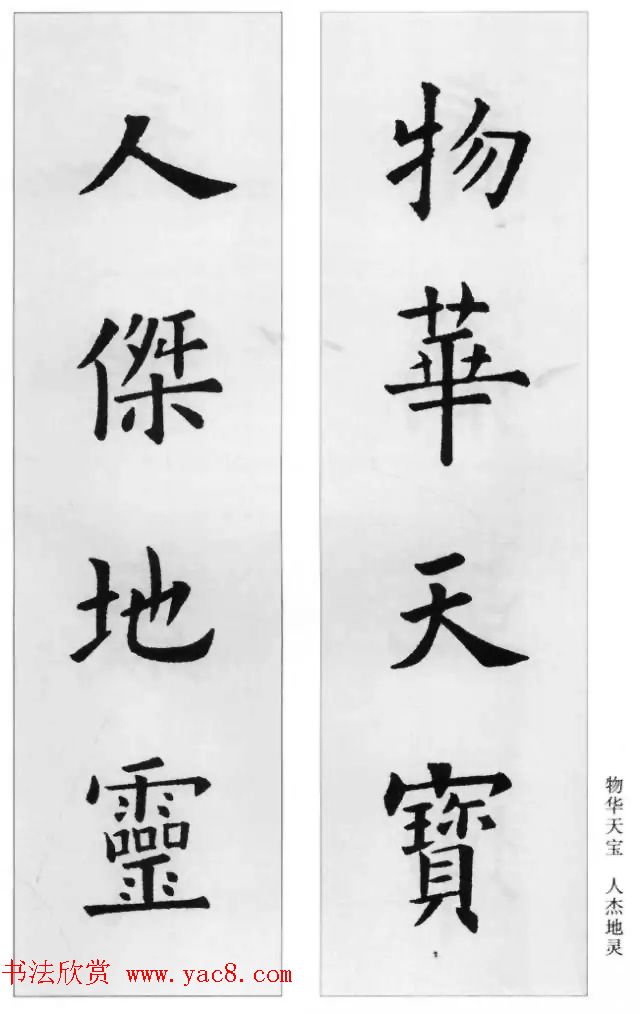 物華天寶
人傑地靈
物华天宝 人杰地灵
书法欣赏 www.yac8.com